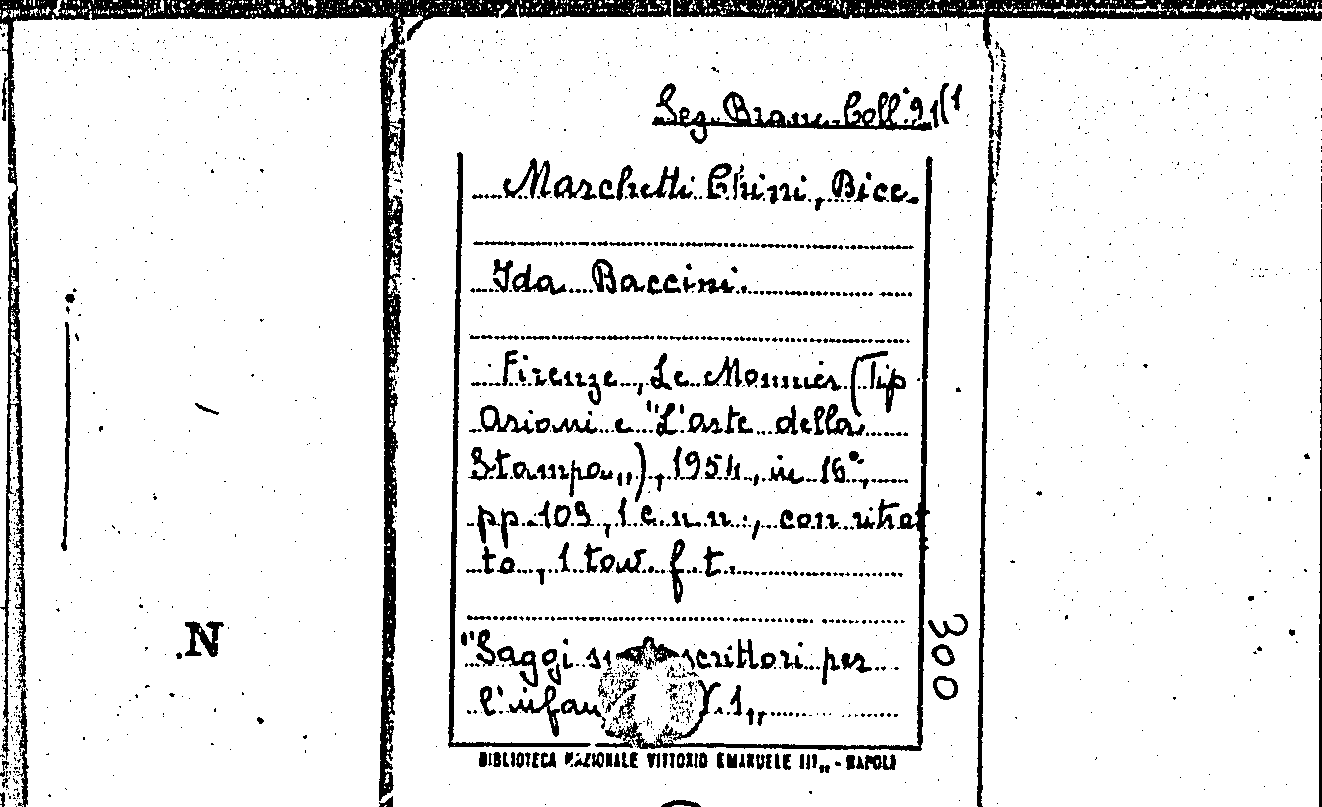 Seg. Branc. Coll. 91(1
Marchetti Chini, Bice.
Ida Baccini.
Firenze, Le Monnier (Tip
Ariani e "L'arte della
Stampa„), 1954, in 16°,
pp. 109, 1 c. n. n., con ritrat
to, 1 tav. f. t.
"Saggi scrittori per
1„
300
N
BIBLIOTECA NAZIONALE VITTORIO EMANUELE III„ - NAPOLI